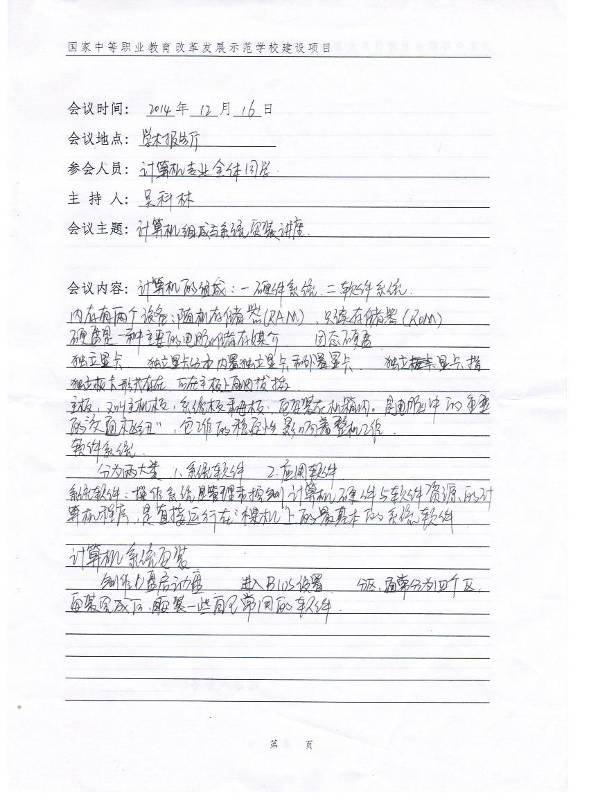 国家中等职业教育改革发展示范学校建设项目
会议时间： 2014 年 12 月 16 日
会议地点： 学术报告厅
参会人员： 计算机专业全体同学
主 持 人： 吴科林
会议主题： 计算机组成与系统安装讲座.
会议内容： 计算机的组成：一硬件系统 二软件系统.
内存有两个设备：随机存储器(RAM)、只读存储器(ROM)
硬盘是一种主要的电脑储存媒介 固态硬盘
独立显卡 独立显卡分为内置独立显卡和外置显卡 独立显卡指
独立板卡形式存在 可在主板上随时拔插
主板，又叫主机板，系统板，安装在机箱内。是电脑中的重要
的 "，它工作的稳定性影响着整机工作
软件系统
分为两大类 1.系统软件 2.应用软件
系统软件：操作系统是管理和控制计算机硬件与软件资源的计
算机程序，是直接运行在"裸机"上的最基本的系统软件
计算机系统安装
制作U盘启动盘 进入BIOS设置 分区，通常分为四个区，
安装完成后，安装一些自己常用的软件.
第 页